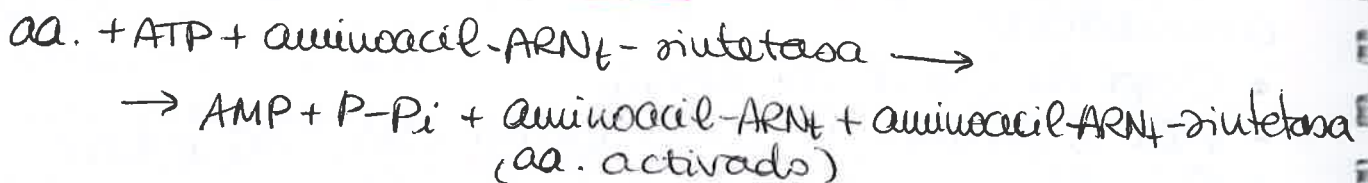 aa. + ATP + aminoacil-ARNt-sintetasa →
→ AMP + P-Pi + aminoacil-ARNt + aminoacil-ARNt-sintetasa
(aa. activado)